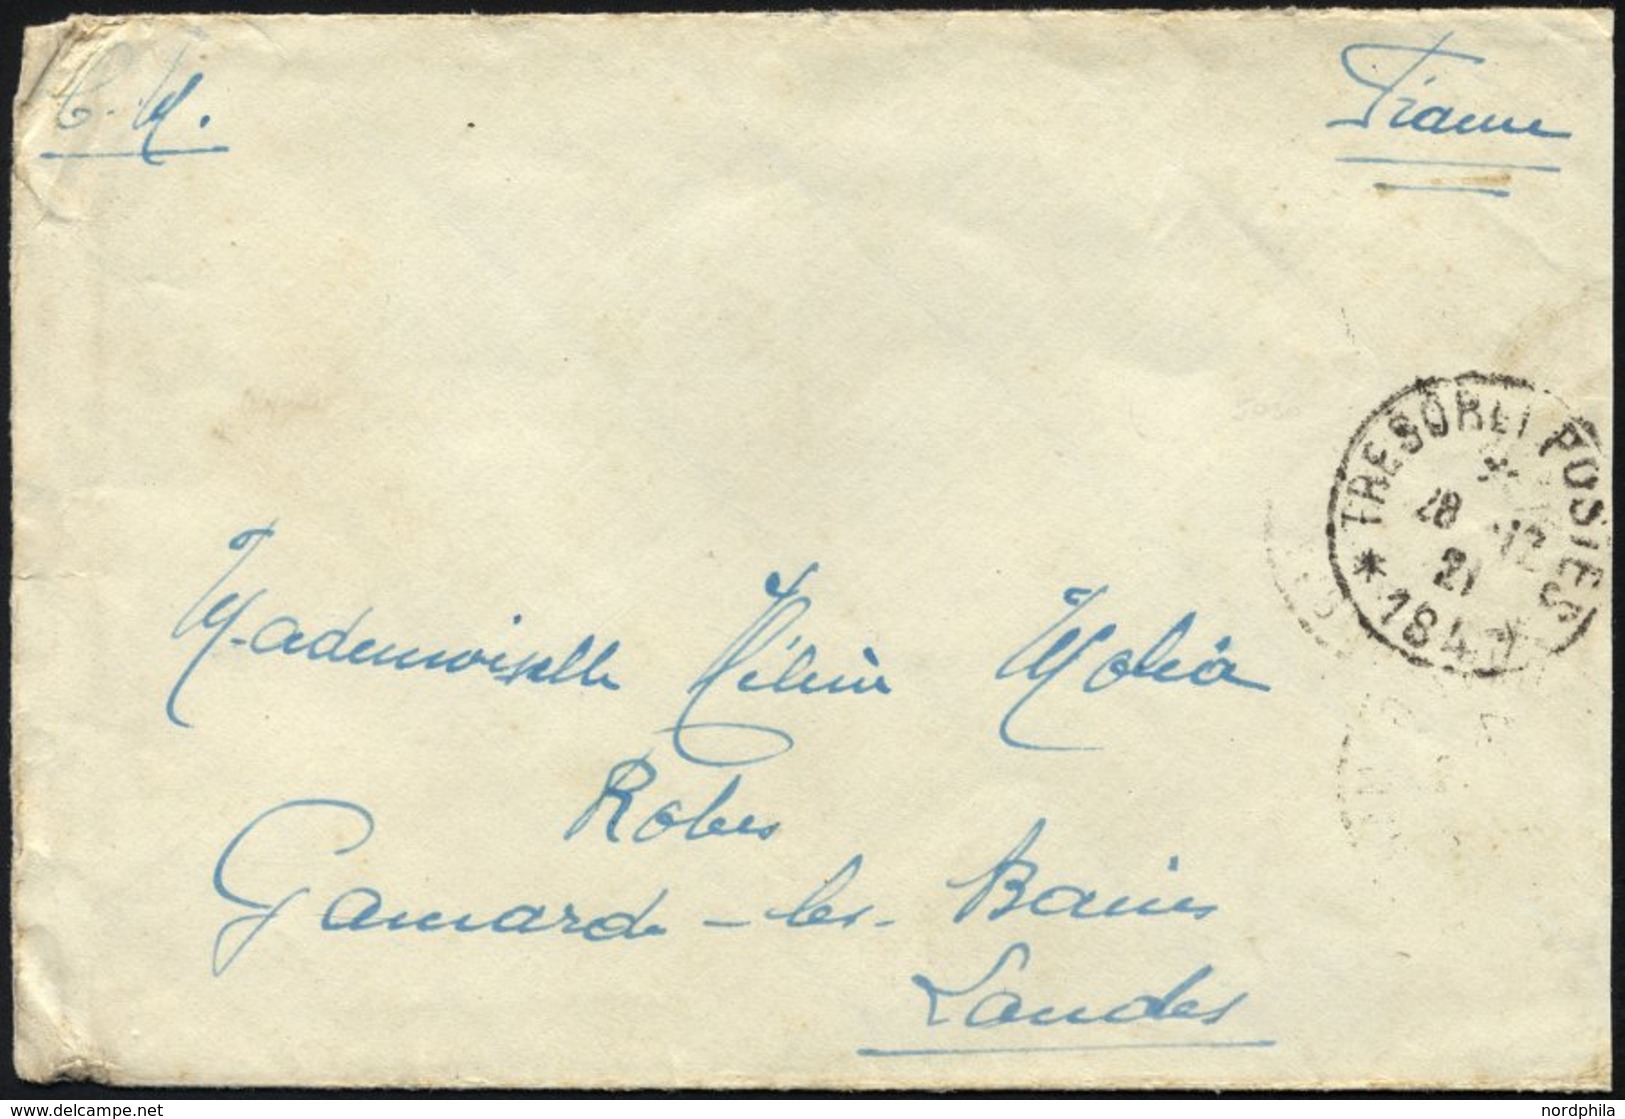 F.M.
France
TRESOR ET POSTES
* 184 *
28 -12
21
Mademoiselle Hélène Molia
Robes
Gamarde-les-Bains
Landes
delcampe.net
nordphila